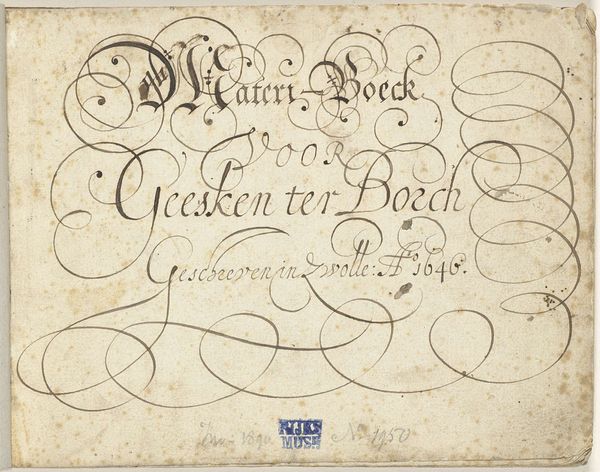 Materi-Boeck
VOOR
Geesken ter Borch
Geschreven in Zwolle: Aº 1646.
RIJKS
MUSM